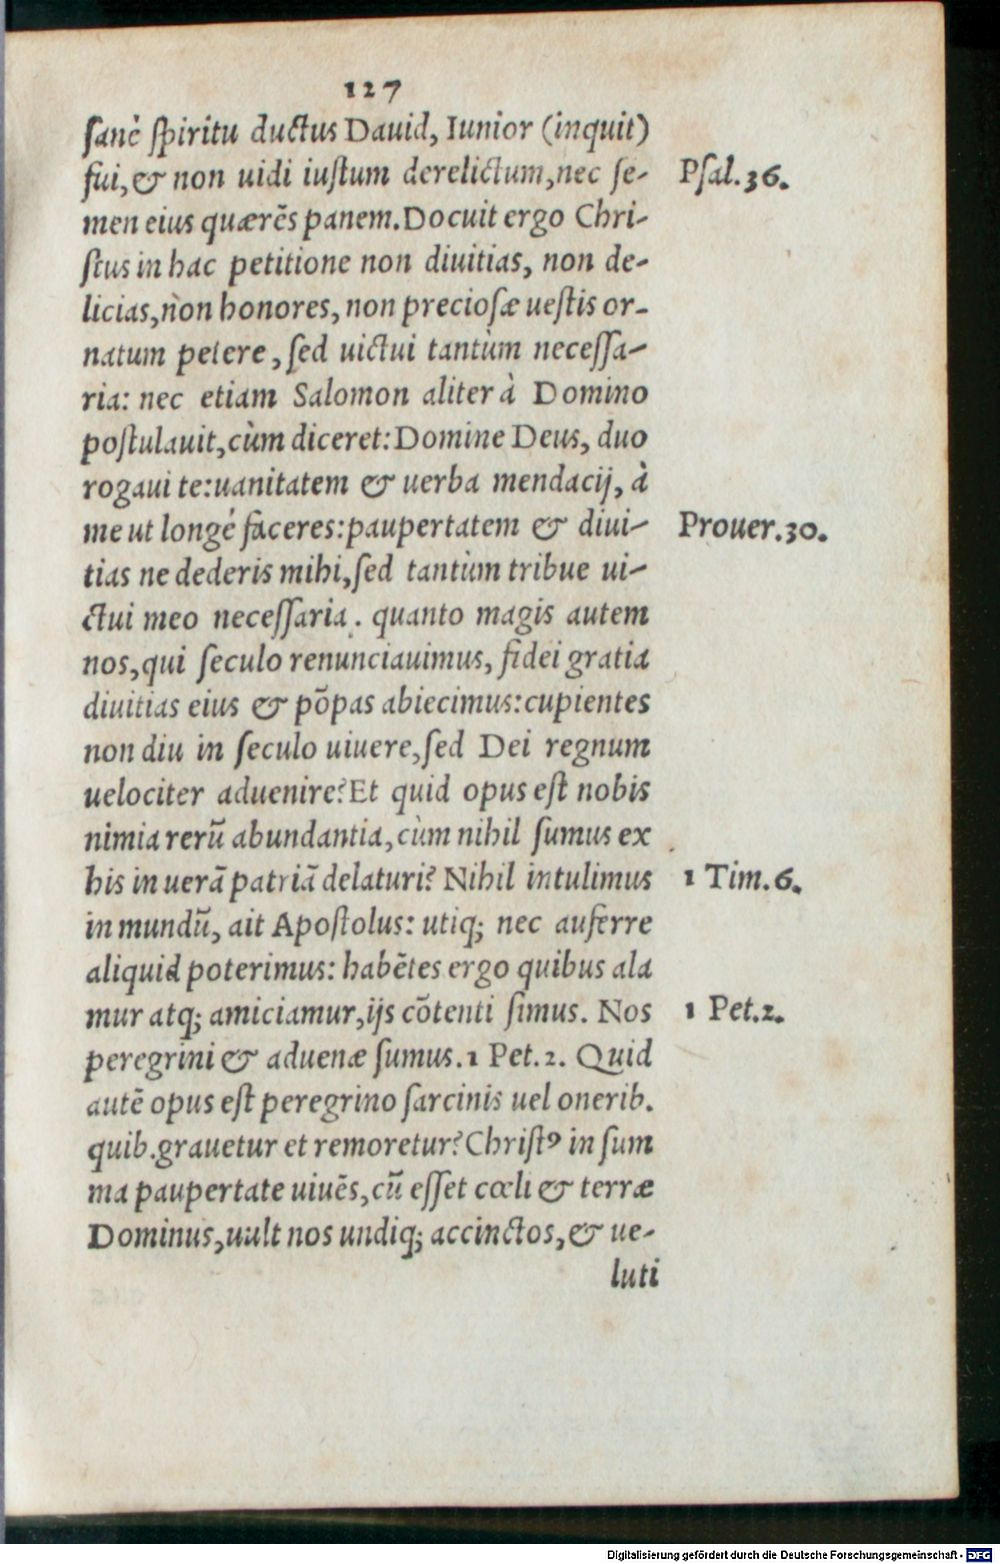 127
ſanè ſpiritu ductus Dauid, Iunior (inquit)
fui, & non uidi iuſtum derelictum, nec ſe-
Pſal. 36.
men eius quærẽs panem. Docuit ergo Chri-
ſtus in hac petitione non diuitias, non de-
licias, non honores, non precioſæ ueſtis or-
natum petere, ſed uictui tantùm neceſſa-
ria: nec etiam Salomon aliter à Domino
poſtulauit, cùm diceret: Domine Deus, duo
rogaui te: uanitatem & uerba mendacij, à
me ut longé faceres: paupertatem & diui-
Prouer. 30.
tias ne dederis mihi, ſed tantùm tribue ui-
ctui meo neceſſaria. quanto magis autem
nos, qui ſeculo renunciauimus, fidei gratia
diuitias eius & põpas abiecimus: cupientes
non diu in ſeculo uiuere, ſed Dei regnum
uelociter aduenire? Et quid opus eſt nobis
nimia rerũ abundantia, cùm nihil ſumus ex
his in uerã patriã delaturi? Nihil intulimus
1 Tim. 6.
in mundũ, ait Apoſtolus: utiq; nec auferre
aliquid poterimus: habẽtes ergo quibus ala
mur atq; amiciamur, ijs cõtenti ſimus. Nos
1 Pet. 2.
peregrini & aduenæ ſumus. 1 Pet. 2. Quid
autẽ opus eſt peregrino ſarcinis uel onerib.
quib. grauetur et remoretur? Chriſtꝰ in ſum
ma paupertate uiuẽs, cũ eſſet cœli & terræ
Dominus, uult nos undiq; accinctos, & ue-
luti
Digitalisierung gefördert durch die Deutsche Forschungsgemeinschaft - DFG